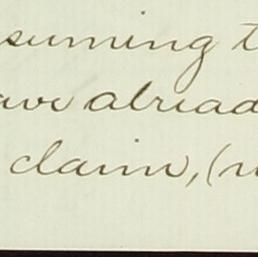 suming t
ave alread
claim, (